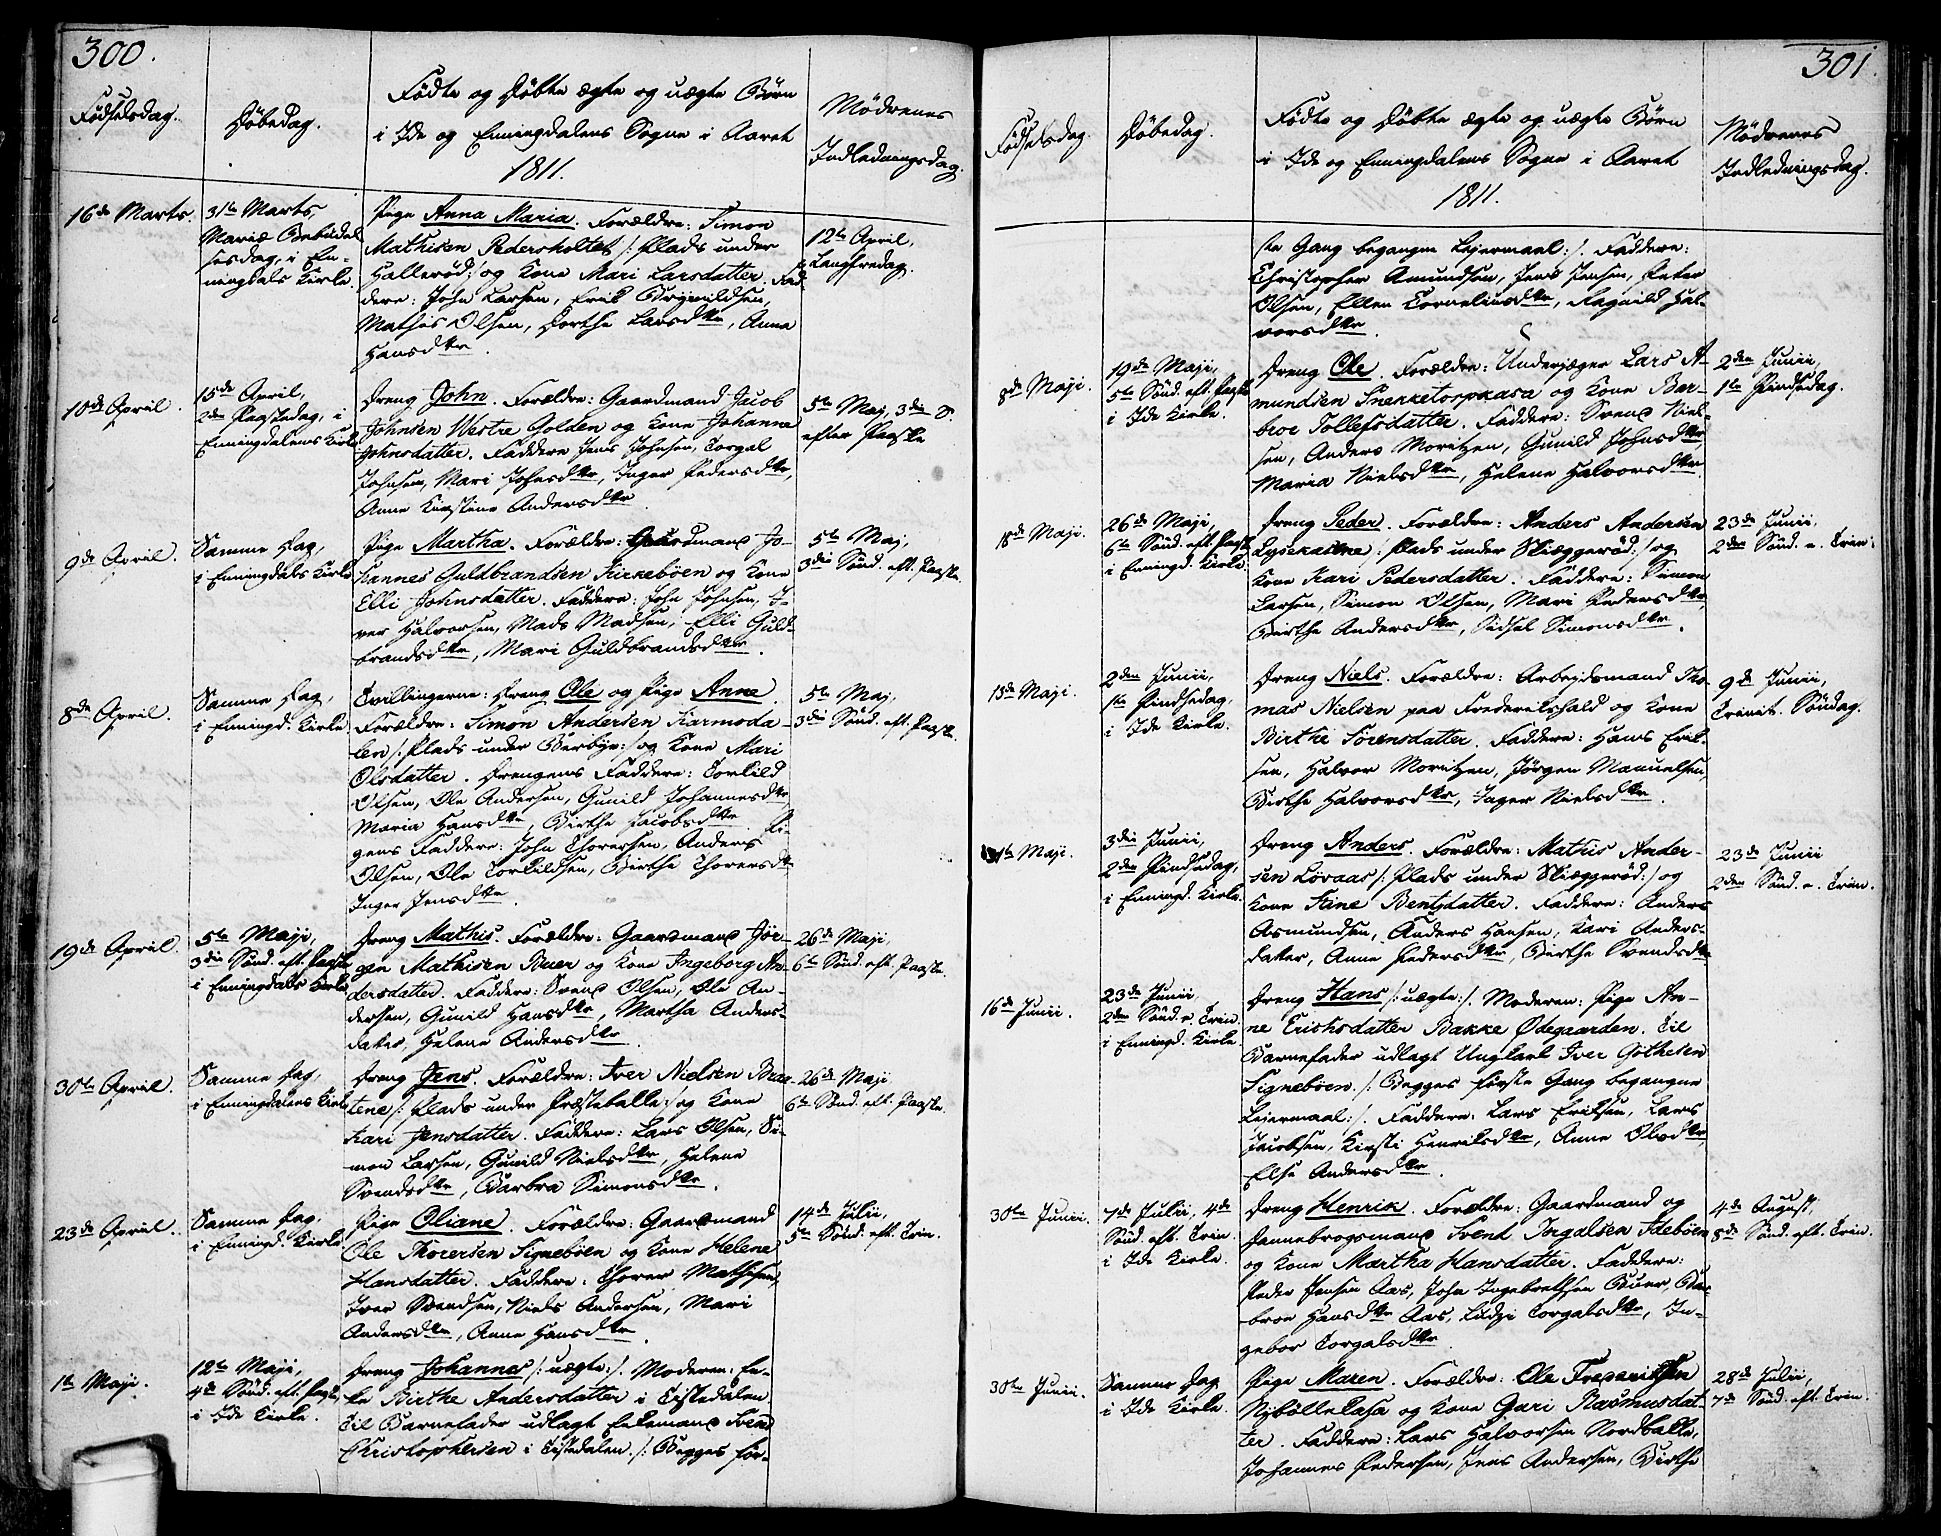 300.
Fødselsdag.
Døbedag.
Fødte og Døbte ægte og uægte Børn
i Ide og Enningdalens Sogne i Aaret
1811.
Mødrenes
Indledningsdag.
16de Marts.
31te Marts,
Mariæ Bebudel
sesdag, i En-
ningdals Kirke.
Pige Anna Maria. Forældre: Simon
Mathisen Pedersholtet /: Plads under
Hallerød :/ og Kone Mari Larsdatter. Fad
dere: John Larsen, Erik Brynildsen,
Mathis Olsen, Dorthe Larsdtr, Anna
Hansdtr.
12te April,
Langfredag.
10de April.
15de April,
2den Paaskedag, i
Enningdalens Kirke
Dreng John. Forældre: Gaardmand Jacob
Johnsen Westre Golden og Kone Johanne
Johnsdatter. Faddere Jens Johnsen, Torgal
Johnsen, Mari Johnsdtr, Inger Pedersdtr,
Anne Kirstine Andersdtr.
5te Maj, 3die S.
efter Paaske
9de April.
Samme Dag,
i Enningdals Kirke
Pige Martha. Forældre: Gaardmand Jo-
hannes Guldbrandsen Kirkebøen og Kone
Elli Johnsdatter. Faddere: John Johnsen, I-
ver Halvorsen, Mads Madsen, Elli Guld-
brandsdtr, Mari Guldbrandsdtr.
5te Maj,
3die Sønd. eft. Paaske.
8de April.
Samme Dag,
i Enningd. Kirke
Tvillingerne: Dreng Ole og Pige Anne.
Forældre: Simon Andersen Kiarmoda-
len /: Plads under Berbye :/ og Kone Mari
Olsdatter. Drengens Faddere: Torkild
Olsen, Ole Andersen, Gunild Johannesdtr,
Maria Hansdtr, Birthe Jacobsdtr. Pi-
gens Faddere: John Thorersen, Anders
Olsen, Ole Torkildsen, Birthe Thorersdtr
Inger Jensdtr.
5te Maj,
3die Sønd. eft. Paaske.
19de April.
5te Maji,
3die Sønd. eft. Paaske
i Enningdals Kirke
Dreng Mathis. Forældre: Gaardmand Jør-
gen Mathisen Buer og Kone Ingeborg An-
dersdatter. Faddere: Svend Olsen, Ole An-
dersen, Gunild Hansdtr, Martha Anders-
datter, Helene Andersdtr.
26de Maji,
6te Sønd. eft. Paaske.
30te April.
Samme Dag,
i Enningdalens Kirke
Dreng Jens. Forældre: Iver Nielsen Braa-
tene /: Plads under Præstebakke :/ og Kone
Kari Jensdatter. Faddere: Lars Olsen, Si-
mon Larsen, Gunild Nielsdtr, Helene
Svendsdtr, Barbra Simonsdtr.
26de Maji
6te Sønd. eft. Paaske.
23de April.
Samme Dag,
i Enningd. Kirke
Pige Oliane. Forældre: Gaardmand
Ole Thorersen Signebøen og Kone Helene
Hansdatter. Faddere: Thorer Mathisen,
Iver Svendsen, Niels Andersen, Mari
Andersdtr, Anne Hansdtr.
14de Julii,
5te Sønd. eft. Trin.
1te Maji.
12te Maji,
4de Sønd. eft. Paaske,
i Ide Kirke.
Dreng Johannes /: uægte :/. Moderen: En-
ke Birthe Andersdatter i Tistedalen.
Til Barnefader udlagt Enkemand Svend
Christophersen i Tistedalen. /: Begges før-
301.
Fødselsdag.
Døbedag.
Fødte og Døbte ægte og uægte Børn
i Ide og Enningdalens Sogne i Aaret
1811.
Mødrenes
Indledningsdag.
ste Gang begangne Lejermaal :/. Faddere:
Christopher Amundsen, Jens Jensen, Peter
Olsen, Ellen Corneliusdtr, Ragnild Hal-
vorsdtr.
8de Maji.
19de Maji,
5te Sønd. eft. Paaske
i Ide Kirke.
Dreng Ole. Forældre: Underjæger Lars A-
mundsen Snekketorpkasa og Kone Bar-
broe Tollefsdatter. Faddere: Svend Niel-
sen, Anders Moritzen, Gunild Johnsdtr,
Maria Nielsdtr, Helene Halvorsdtr.
2den Junii,
1te Pindsedag.
18de Maji.
26de Maji,
6te Sønd. eft. Paaske
i Enningd. Kirke.
Dreng Peder. Forældre: Anders Andersen
Lysekattene /: Plads under Skiæggerød :/ og
Kone Kari Pedersdatter. Faddere: Simon
Larsen, Simon Olsen, Mari Pedersdtr
Birthe Andersdtr, Sidsel Simonsdtr.
23de Junii,
2den Sønd. e. Trin.
15de Maji.
2den Junii,
1te Pindsedag,
i Ide Kirke.
Dreng Niels. Forældre: Arbejdsmand Tho-
mas Nielsen paa Frederikshald og Kone
Birthe Sørensdatter. Faddere: Hans Erik-
sen, Halvor Moritzen, Jørgen Manuelsen,
Birthe Halvorsdtr, Inger Nielsdtr.
9de Junii,
Trinit. Søndag.
31te Maji.
3die Junii,
2den Pindsedag,
i Enningd. Kirke.
Dreng Anders. Forældre: Mathis Ander-
sen Løvaas /: Plads under Skiæggerød :/ og
Kone Stine Bentsdatter. Faddere: Anders
Asmundsen, Anders Hansen, Kari Anders-
datter, Anne Pedersdtr, Birthe Svendsdtr
23de Junii
2den Sønd. e. Trin.
16de Junii.
23de Junii,
2den Sønd. e. Trin.
i Enningd. Kirke
Dreng Hans /: uægte :/. Moderen: Pige An-
ne Erichsdatter Bakke Ødegaarden. Til
Barnefader udlagt Ungkarl Iver Gøthesen
Signebøen. /: Begges første Gang begangne
Lejermaal :/. Faddere: Lars Eriksen, Lars
Jacobsen, Kirsti Henriksdtr, Anne Olsdtr,
Else Andersdtr.
30te Junii.
7de Julii, 4de
Sønd. eft. Trin.
i Ide Kirke.
Dreng Henrik. Forældre: Gaardmand og
Dannebrogsmand Svend Torgalsen Idebøen
og Kone Martha Hansdatter. Faddere:
Peder Jensen Aas, John Ingebrethsen Buer, Bar-
broe Hansdtr Aas, Torgalsdtr, In-
gebor Torgalsdtr.
4de August,
8de Sønd. eft. Trin.
30te Junii.
Samme Dag
i Ide Kirke.
Pige Maren. Forældre: Ole Frederiksen
Nybøllekasa og Kone Gari Rasmusdat-
ter. Faddere: Lars Halvorsen Nordbakke,
Johannes Pedersen, Jens Andersen, Birthe
28de Julii,
7de Sønd. eft. Trin.